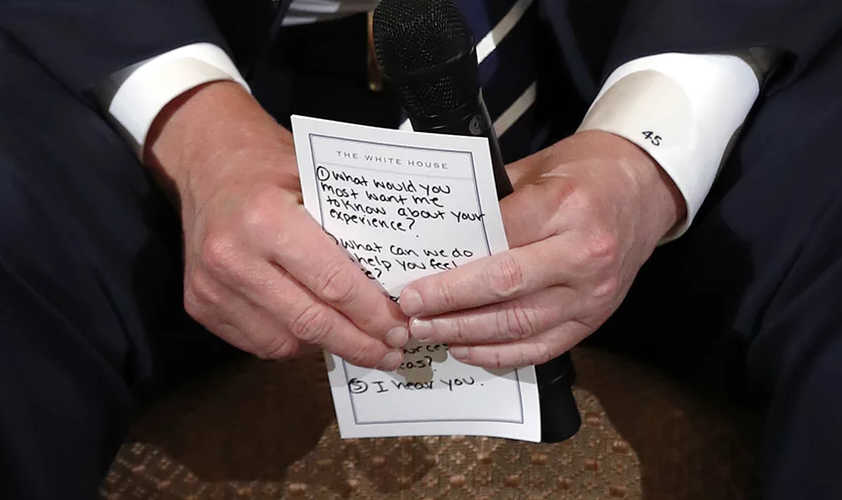 THE WHITE HOUSE
① What would you
most want me
to know about your
experience?
What can we do
help you feel
I hear you.
⑤ I hear you.
45